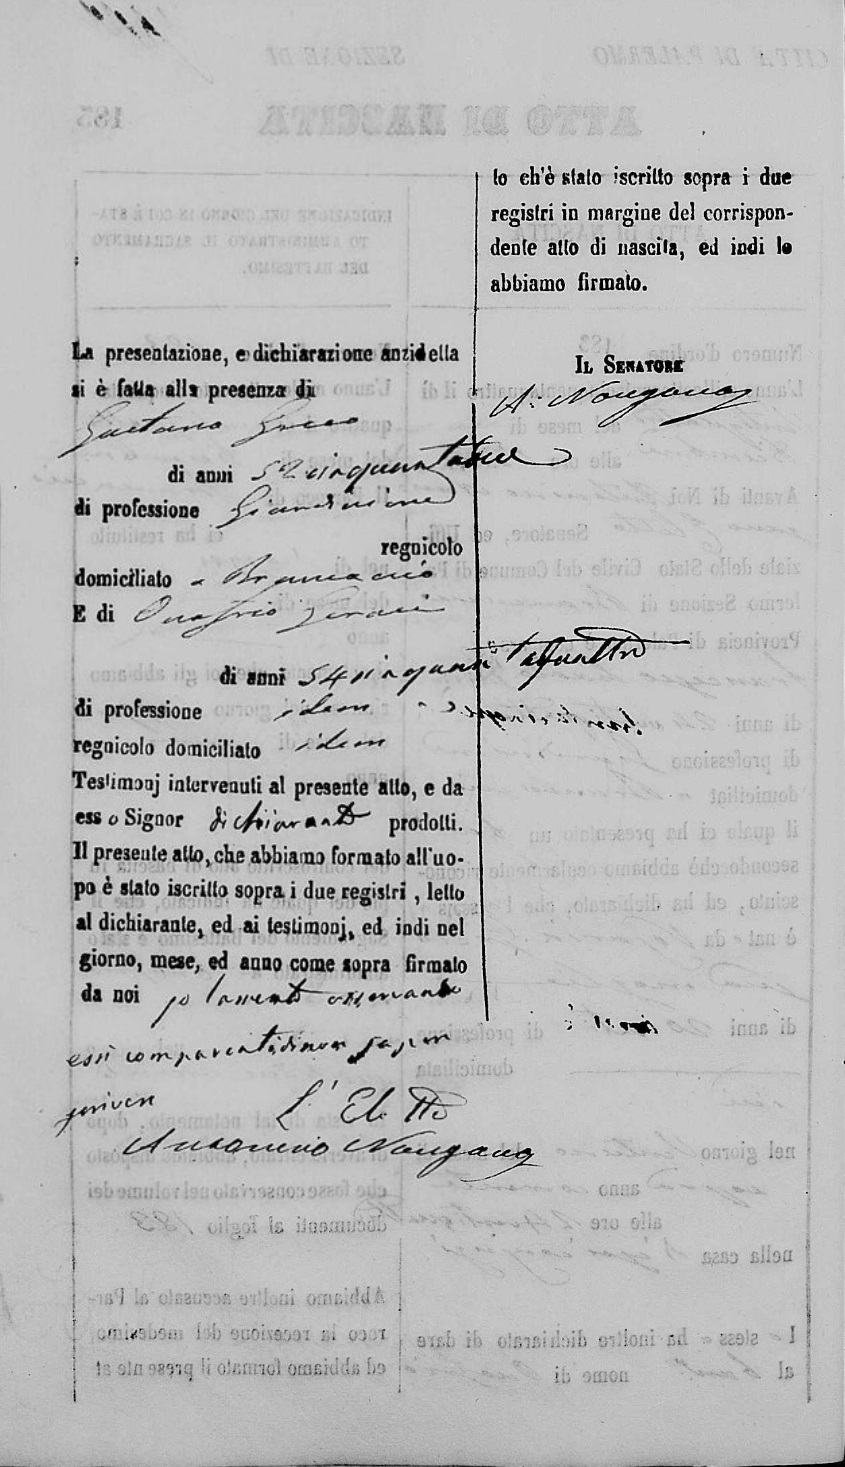 La presentazione, e dichiarazione anzidetta
si è fatta alla presenza di
Gaetano Greco
di anni 52 cinquantadue
di professione Giardiniere
regnicolo
domiciliato a Brancaccio
E di Onofrio Geraci
di anni 54 cinquantaquattro
di professione idem
regnicolo domiciliato idem
Testimonj intervenuti al presente atto, e da
esso Signor dichiarante prodotti.
Il presente atto, che abbiamo formato all'uo-
po è stato iscritto sopra i due registri, letto
al dichiarante, ed ai testimonj, ed indi nel
giorno, mese, ed anno come sopra firmato
da noi
essi comparenti di non saper
scrivere
L' Eletto
Nangano
to ch'è stato iscritto sopra i due
registri in margine del corrispon-
dente atto di nascita, ed indi lo
abbiamo firmato.
IL SENATORE
A. Nangano